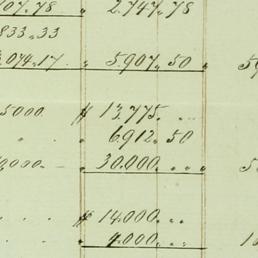 107.78 2.747.78
833.33
3.074.17 5.907.50 59
5000. $ 13.775. . .
" " 6.912.50
0,000 30.000. . . 5
. . . $ 14.000. . .
. . . 4.000. . . 1